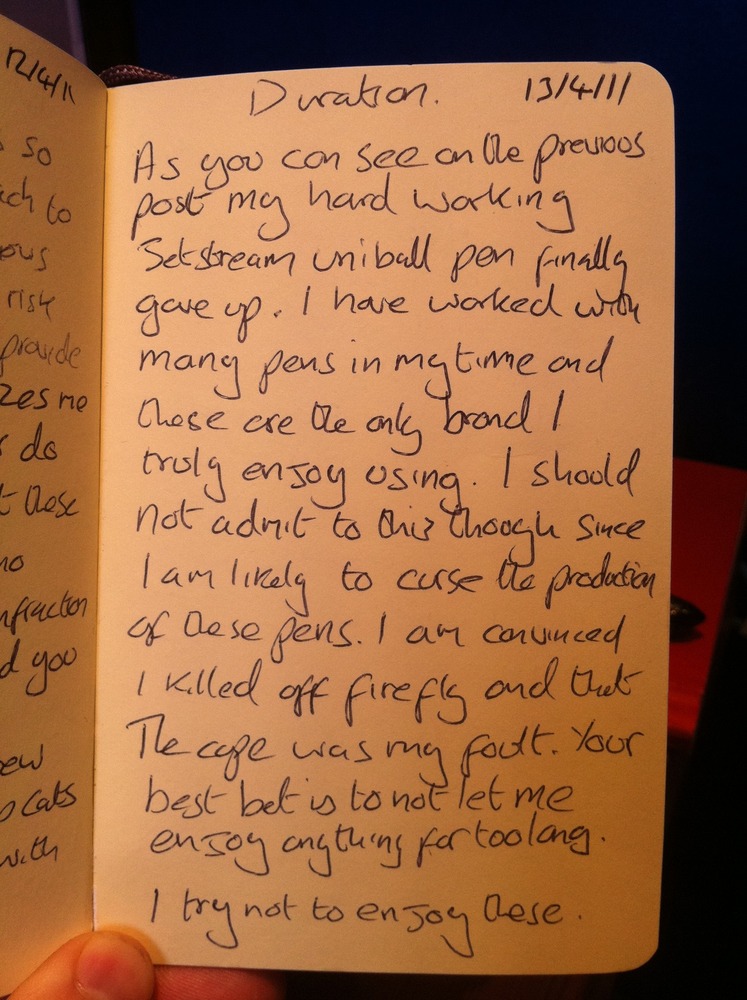 12/4/11
so
ch to
ous
risk
provide
zes me
do
t these
no
nfraction
d you
ew
cats
with
Duration. 13/4/11
As you can see on the previous
post my hard working
Jetstream uniball pen finally
gave up. I have worked with
many pens in my time and
these are the only brand I
truly enjoy using. I should
not admit to this though since
I am likely to curse the production
of these pens. I am convinced
I killed off firefly and that
The cape was my fault. Your
best bet is to not let me
enjoy anything for too long.
I try not to enjoy these.